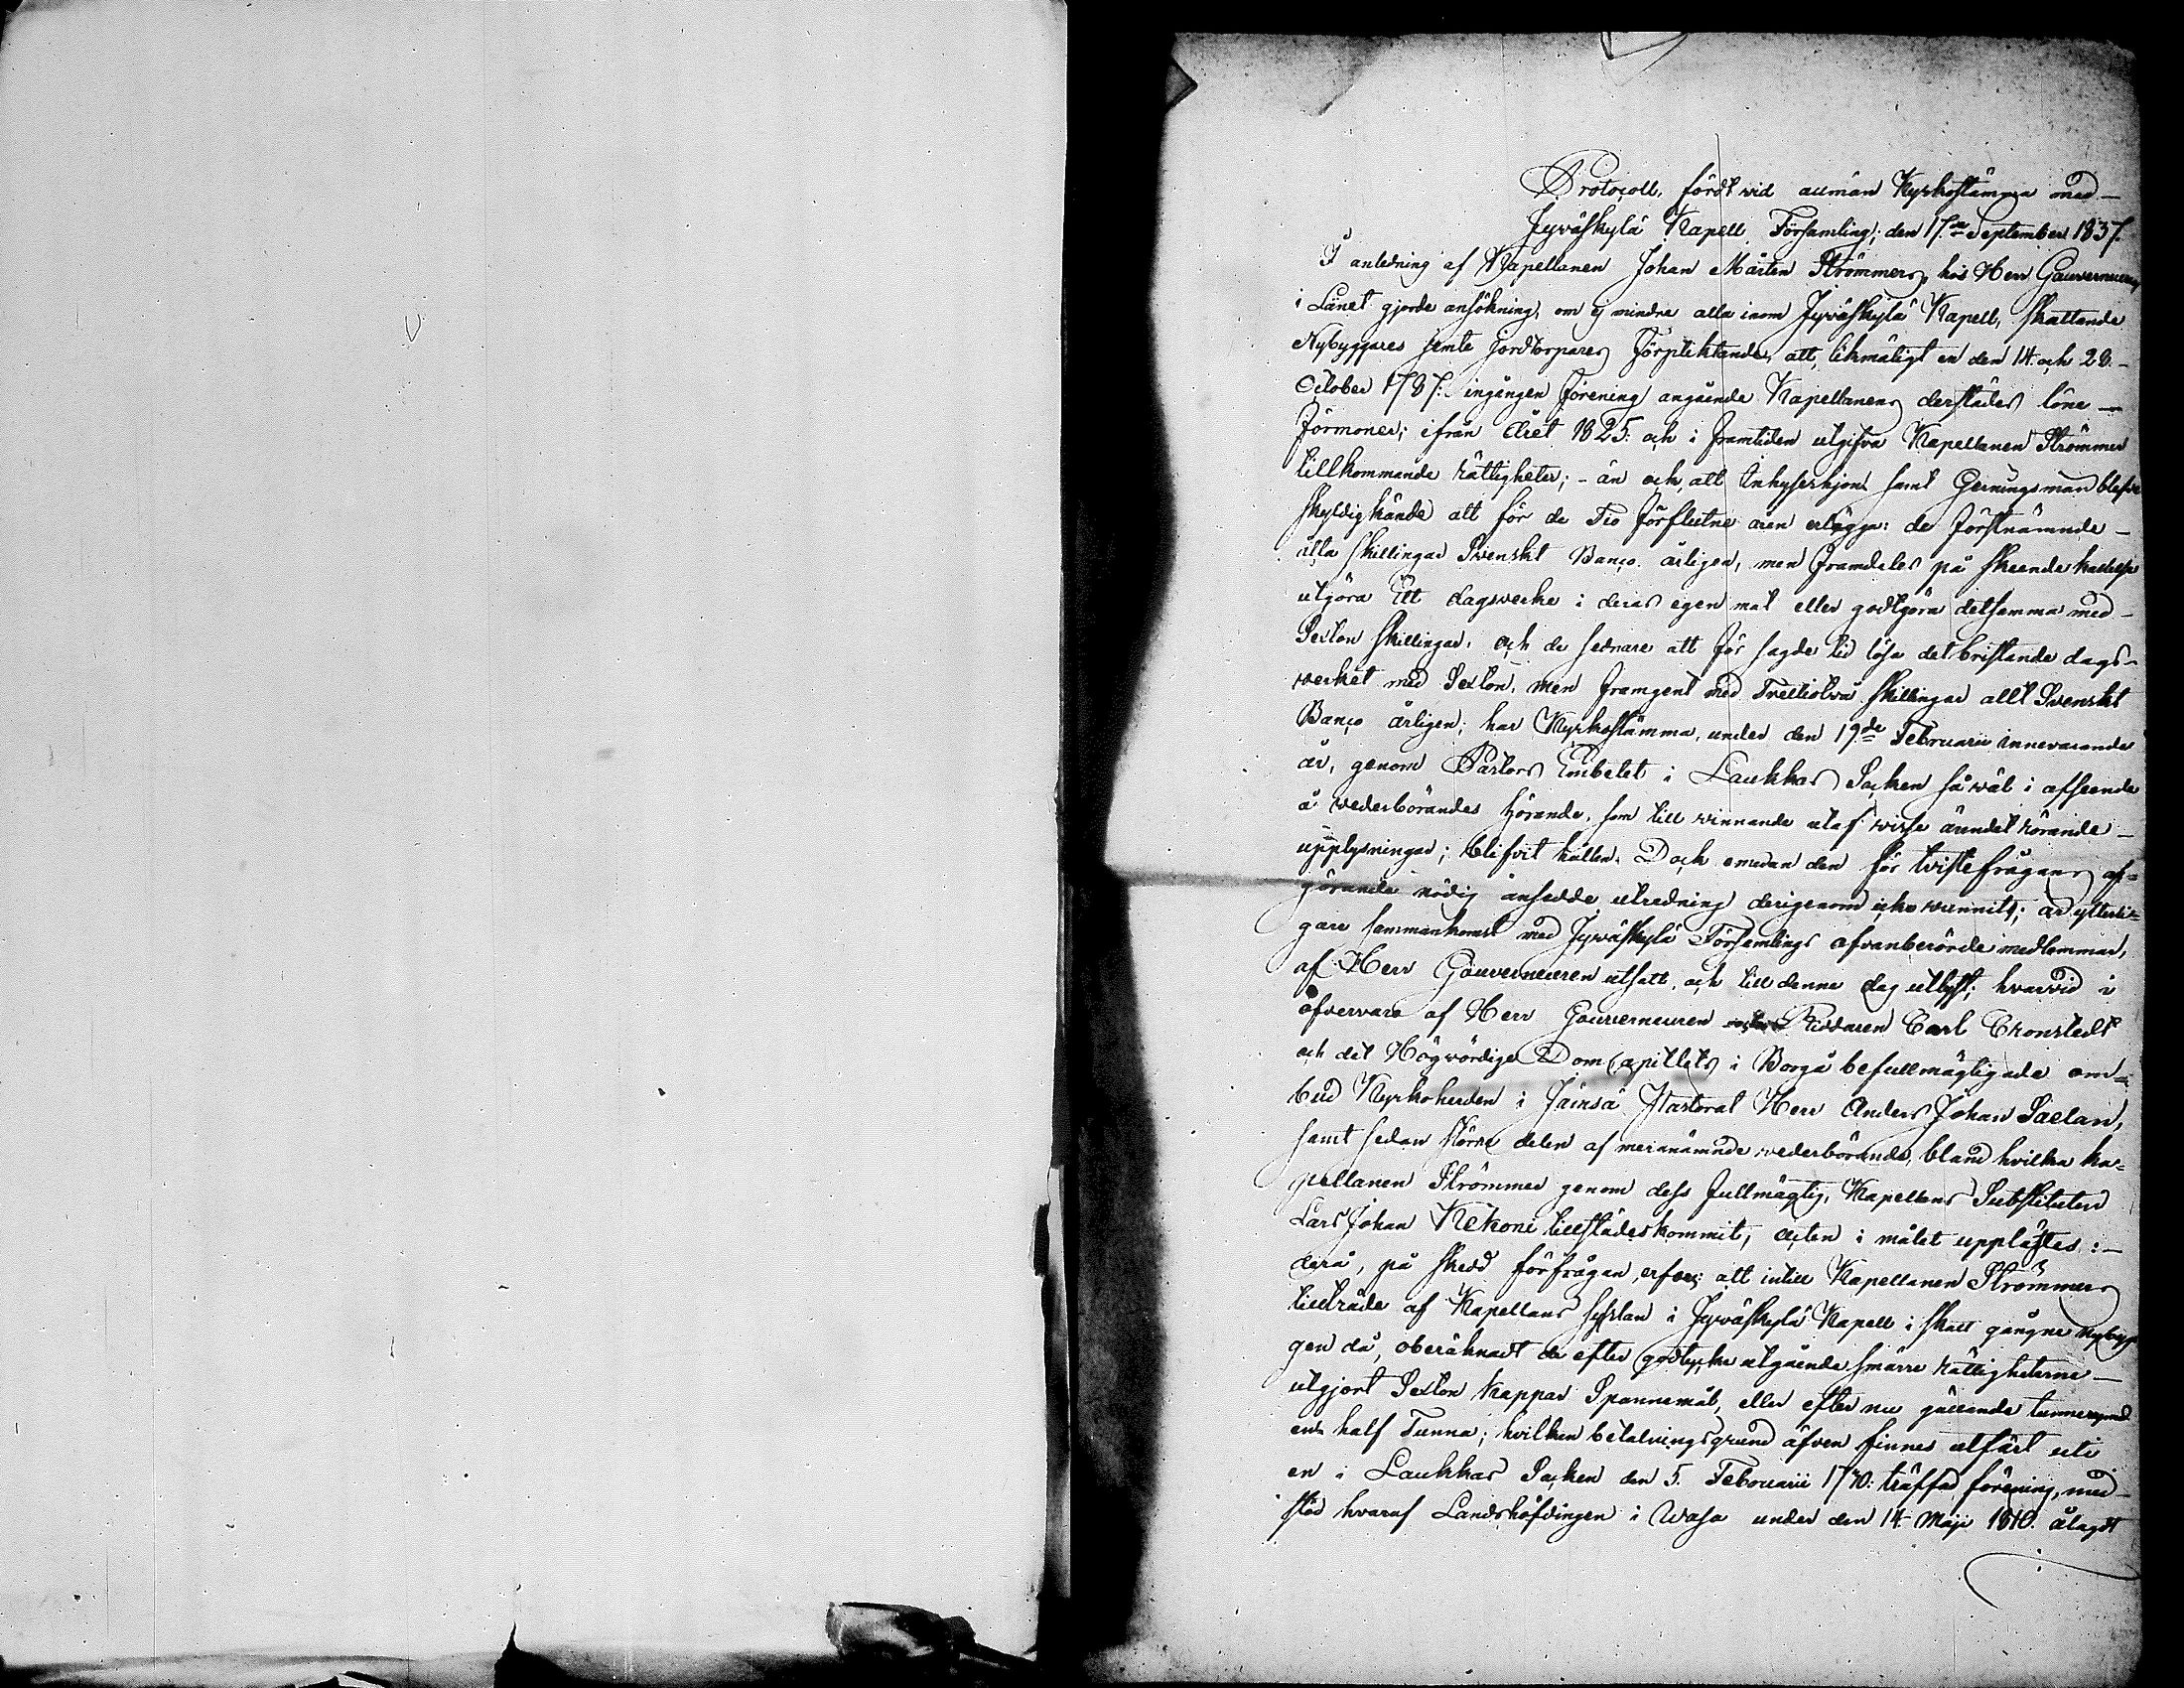 Protocoll, fördt vid allmän Kyrkostämma med
Jyväskylä Kapell Församling; den 17.de September 1837.
I anledning af Kapellanen Johan Mårten Strömmers, hos Herr Gouverneuren
i Länet gjorde ansökning, om ej mindre alla inom Jyväskylä Kapell, skattande
Nybyggares jemte jordtorpares förpliktande, att, likmäligt en den 14. och 28.
October 1787. ingången förening angående Kapellanens derstädes löne
förmoner; ifrån året 1825. och i framtiden utgifva Kapellanen Strömmer
tillkommande rättigheter; - än och, att Inhyseshjon samt Gerningsmän blefve
skyldigkände att för de Tio förflutne åren erlägga: de förstnämnde
åtta skillingar Svenskt Banco årligen, men framdeles på skeende kallelse
utgöra Ett dagsverke i deras egen mat eller godtgöra detsamma med
Sexton skillingar, och de sednare att för sagde tid lösa det bristande dags-
verket med Sexton, men framgent med Trettiotvå skillingar allt Svenskt
Banco årligen; har Kyrkostämma, under den 19de Februarii innevarande
år, genom Pastors Embetet i Laukkas Socken så väl i afseende
å vederbörandes hörande, som till vinnande utaf visse ärendet rörande
upplysningar; blifvit hållen. Doch emedan den för tvistefrågans af-
görande nödig ansedde utredning derigenom icke vunnits; är ytterli-
gare sammankomst med Jyväskylä Församlings ofvanberörde medlemmar,
af Herr Gouverneuren utsatt, och till denna dag utlyst; hvarvid i
öfvervaro af Herr Gouverneuren Riddaren Carl Cronstedt
och det Högvördige Dom Capitlets i Borgå befullmägtigade om-
bud Kyrkoherden i Jämsä Pastorat Herr Anders Johan Saelan,
samt sedan större delen af meranämnde vederbörande, bland hvilka Ka-
pellanen Strömmer genom dess fullmägtig, Kapellans Substituten
Lars Johan Kekoni tillstädeskommit, acten i målet upplästes:
derå, på skedd förfrågan, erfors: att intill Kapellanen Strömmers
tillträde af Kapellans sysslan i Jyväskylä Kapell i skatt gångne nybyg-
gen då, oberäknadt de efter godtycke utgående smärre rättigheterne
utgjort Sexton Kappar Spannemål, eller efter nu gällande
en half Tunna; hvilken betalningsgrund äfven finnes utfärt uti
en i Laukkas Socken den 5. Februarii 1770. träffad förening, med
stöd hvaraf Landshöfdingen i Wasa under den 14 Maji 1810. ålagdt